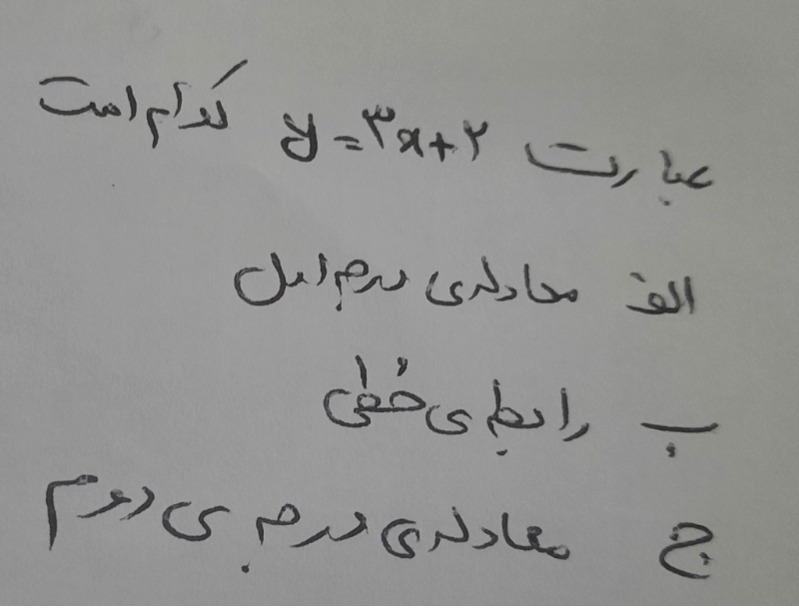 عبارت y = ۳x + ۲ کدام است
الف معادله‌ی درجه اول
ب رابطه‌ی خطی
ج معادله‌ی درجه‌ی دوم